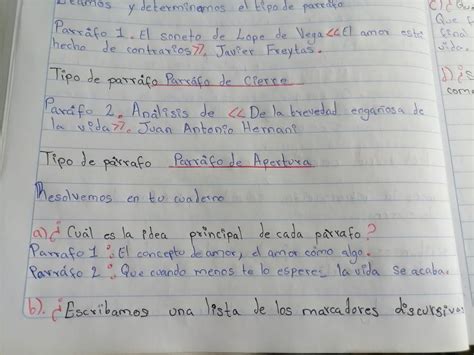 Leamos y determinamos el tipo de parrafo
Parráfo 1. El soneto de Lope de Vega <<El amor está
hecho de contrarios>>. Javier Freytas.
Tipo de parráfo Parráfo de Cierre
Paráfo 2. Análisis de <<De la brevedad engañosa de
la vida>>. Juan Antonio Hernani
Tipo de párrafo Parráfo de Apertura
Resolvemos en tu cuaderno
a) ¿Cuál es la idea principal de cada párrafo?
Parrafo 1: El concepto de amor, el amor cómo algo.
Parráfo 2: Que cuando menos te lo esperes la vida se acaba.
b). ¿Escribamos una lista de los marcadores discursivos
c) ¿Qu
final
vida
d) ¿
com